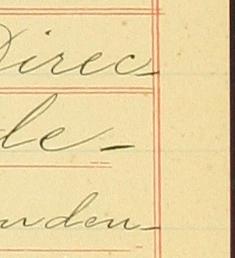 Direc-
le-
nden-